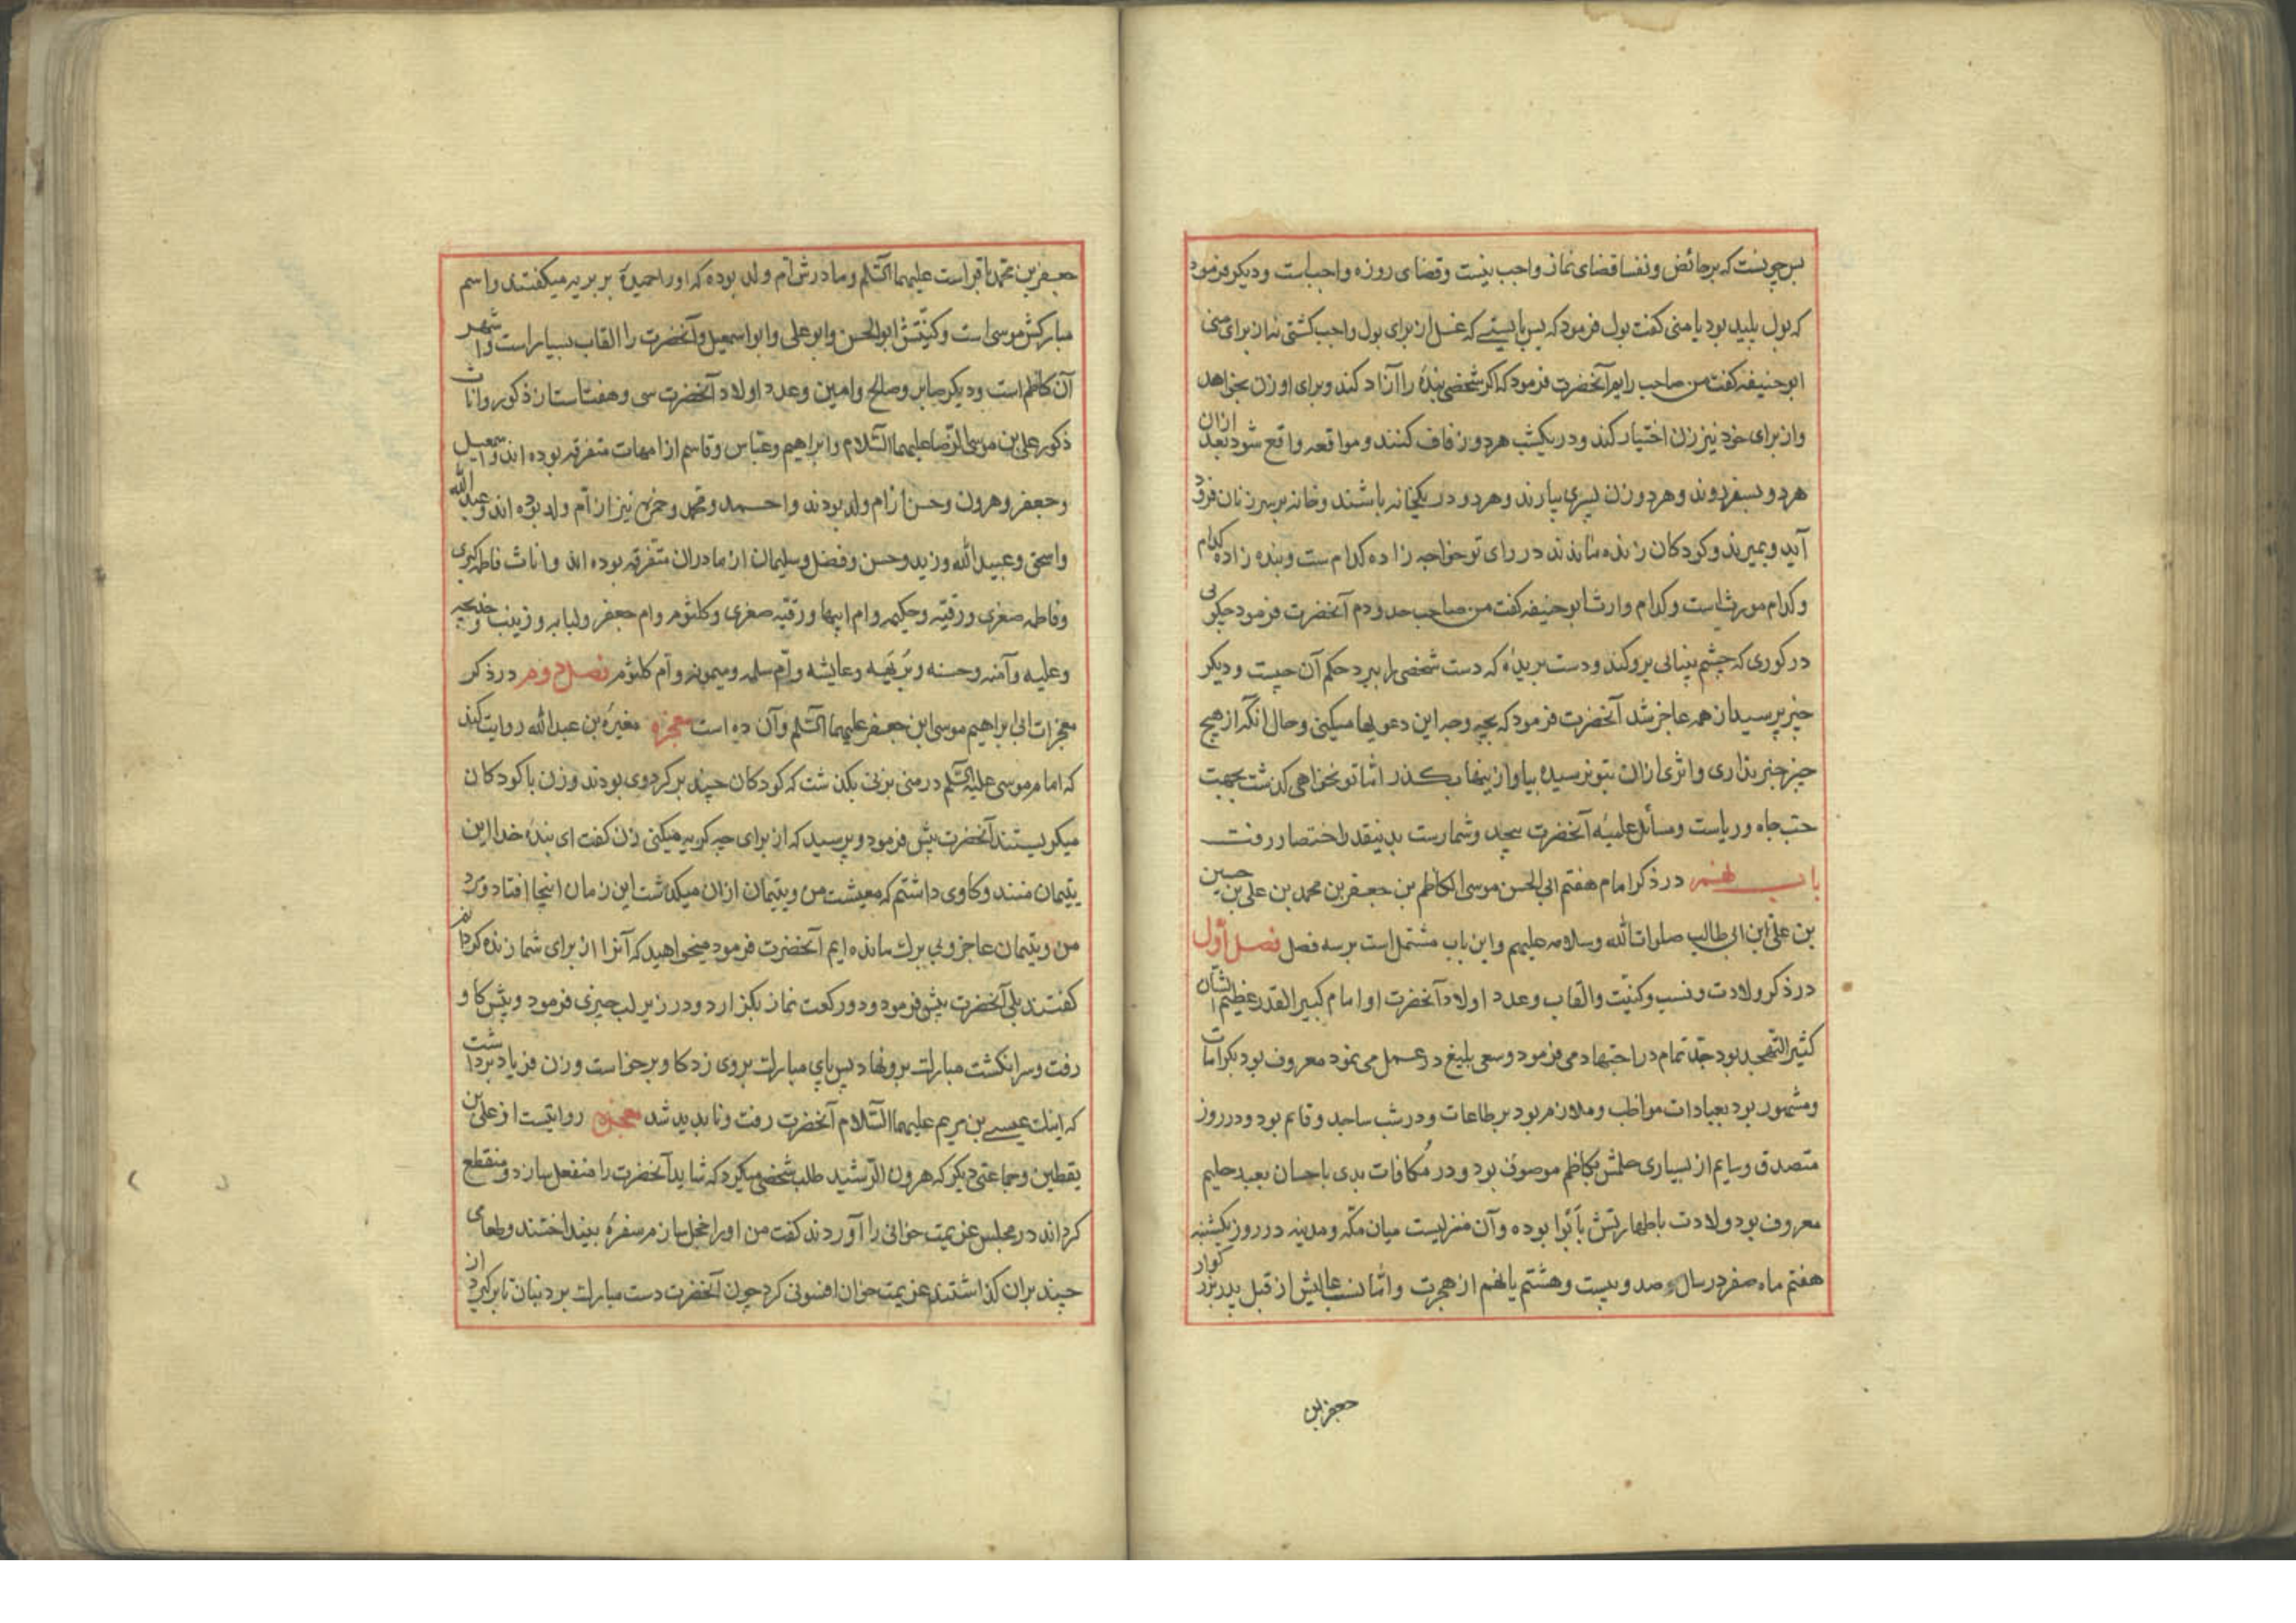 پس چونست که بر حائض و نفسا قضای نماز واجب نیست و قضای روزه واجبست و دیکر فرمود
که بول پلید بود یا منی کفت بول فرمود که پس بایستی که غسل از برای بول واجب کشتی نه از برای منی
ابو حنیفه کفت من صاحب رایم آنحضرت فرمود که اکر شخصی بندهٔ را آزاد کند و برای او زن بخواهد
و از برای خود نیز زن اختیار کند و در یکشب هر دو زفاف کنند و مواقعه واقع شود بعد ازان
هر دو بسفر روند و هر دو زن پسری بیارند و هر دو در یکخانه باشند و خانه بر سر زنان فرود
آید و بمیرند و کودکان زنده مانند در رای تو خواجه زاده کدام ست و بنده زاده کدام
و کدام مورث است و کدام وارث ابو حنیفه کفت من صاحب حدودم آنحضرت فرمود چکوئی
در کوری که چشم بینائی برو کند و دست بریدهٔ که دست شخصی را ببرد حکم آن چیست و دیکر
چیز پرسید از همه عاجز شد آنحضرت فرمود که بچه وجه این دعویها میکنی و حال انکه از هیچ
چیز خبر نداری و اثری ازان بتو نرسیده بیا و از ینها بکذر اما تو نخواهی کذشت بجهت
حب جاه و ریاست و مسائل علمیه آنحضرت بیحد و شمارست بدینقدر اختصار رفت
باب نهم در ذکر امام هفتم ابی الحسن موسی الکاظم بن جعفر بن محمد بن علی بن حسین
بن علی ابن ابی طالب صلوات الله و سلامه علیهم و این باب مشتمل است بر سه فصل فصل اول
در ذکر ولادت و نسب و کنیت و القاب و عدد اولاد آنحضرت او امام کبیر القدر عظیم الشأن
کثیر التهجد بود جد تمام در اجتهاد می فرمود و سعی بلیغ در عمل می نمود معروف بود بکرامات
و مشهور بود بعبادات مواظب و ملازم بود بر طاعات و در شب ساجد و قایم بود و در روز
متصدق و صایم از بسیاری حلمش بکاظم موصوف بود و در مکافات بدی باحسان بعبد حلیم
معروف بود ولادت باطهارتش بأبوا بوده و آن منزلیست میان مکه و مدینه در روز یکشنبه
هفتم ماه صفر در سال صد و بیست و هشتم یا نهم از هجرت و اما نسب عالیش از قبل پدر بزرکوار
جعفر بن
جعفر بن محمد باقر است علیهما السلم و مادرش ام ولد بوده که او را حمیدهٔ بربریه میکفتند و اسم
مبارکش موسی است و کنیتش ابوالحسن و ابو علی و ابو اسمعیل و آنحضرت را القاب بسیار است و اشهر
آن کاظم است و دیکر صابر و صالح و امین و عدد اولاد آنحضرت سی و هفت است از ذکور و اناث
ذکور علی بن موسی الرضا علیهما السلام و ابراهیم و عباس و قاسم از امهات متفرقه بوده اند و اسمعیل
و جعفر و هرون و حسن از ام ولد بودند و احمد و محمد و حمزه نیز از ام ولد بوده اند و عبد الله
و اسحق و عبید الله و زید و حسن و فضل و سلیمان از مادران متفرقه بوده اند و اناث فاطمه کبری
و فاطمه صغری و رقیه و حکیمه و ام ابیها و رقیه صغری و کلثوم و ام جعفر و لبابه و زینب و خدیجه
و علیه و آمنه و حسنه و بریهه و عایشه و ام سلمه و میمونه و ام کلثوم فصل دوم در ذکر
معجزات ابی ابراهیم موسی ابن جعفر علیهما السلم و آن ده است معجزه مغیرة بن عبد الله روایت کند
که امام موسی علیه السلم در منی بزنی بکذشت که کودکان چند بر کرد وی بودند و زن با کودکان
میکریستند آنحضرت پیش فرمود و پرسید که از برای چه کریه میکنی زن کفت ای بندهٔ خدا این
یتیمان منند و کاوی داشتم که معیشت من و یتیمان ازان میکذشت این زمان اینجا افتاد و مرد
من و یتیمان عاجز و بی برک مانده ایم آنحضرت فرمود میخواهید که آنرا از برای شما زنده کردانم
کفتند بلی آنحضرت پیش فرمود و دو رکعت نماز بکزارد و در زیر لب چیزی فرمود و پیش کاو
رفت و سر انکشت مبارک برو نهاد پس پای مبارک بروی زد کاو برخواست و زن فریاد برداشت
که اینک عیسی بن مریم علیهما السلام آنحضرت رفت و ناپدید شد معجزه روایتست از علی بن
یقطین و جماعتی دیکر که هرون الرشید طلب شخصی میکرد که شاید آنحضرت را منفعل سازد و منقطع
کرداند در مجلس عزیمت خوانی را آوردند کفت من او را خجل سازم سفرهٔ بینداختند و طعامی
چند بران کذاشتند عزیمت خوان افسونی کرد چون آنحضرت دست مبارک برد بنان تا برکیرد از